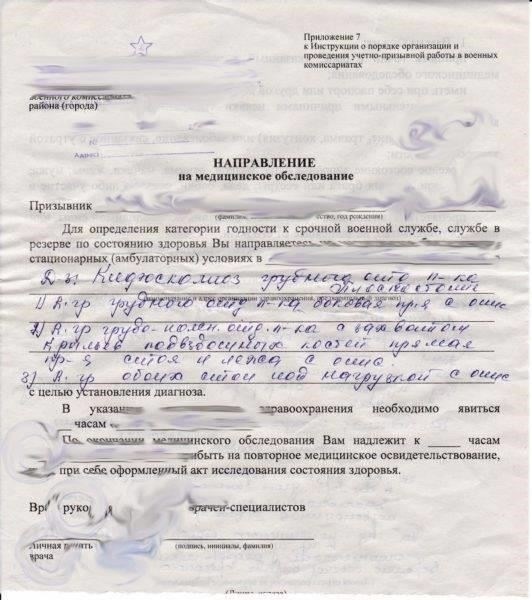 Приложение 7
к Инструкции о порядке организации и
проведения учетно-призывной работы в военных
комиссариатах
военного комиссариата
района (города)
Адрес:
НАПРАВЛЕНИЕ
на медицинское обследование
Призывник
(фамилия, ство, год рождения)
Для определения категории годности к срочной военной службе, службе в
резерве по состоянию здоровья Вы направляетесь на
стационарных (амбулаторных) условиях в
Д-з: Кифосколиоз грудного отд п-ка
Плоскостопие
1) R-гр грудного отд п-ка боковая пр-я с опис
2) R-гр грудо-поясн. отд. п-ка с захватом
крыльев подвздошных костей прямая
пр-я стоя и лежа с опис.
3) R-гр обоих стоп под нагрузкой с опис
с целью установления диагноза.
В указан здравоохранения необходимо явиться
часам
По окончании медицинского обследования Вам надлежит к часам
ибыть на повторное медицинское освидетельствование,
при себе оформленный акт исследования состояния здоровья.
Вр руко врачей-специалистов
Личная печать
врача
(подпись, инициалы, фамилия)